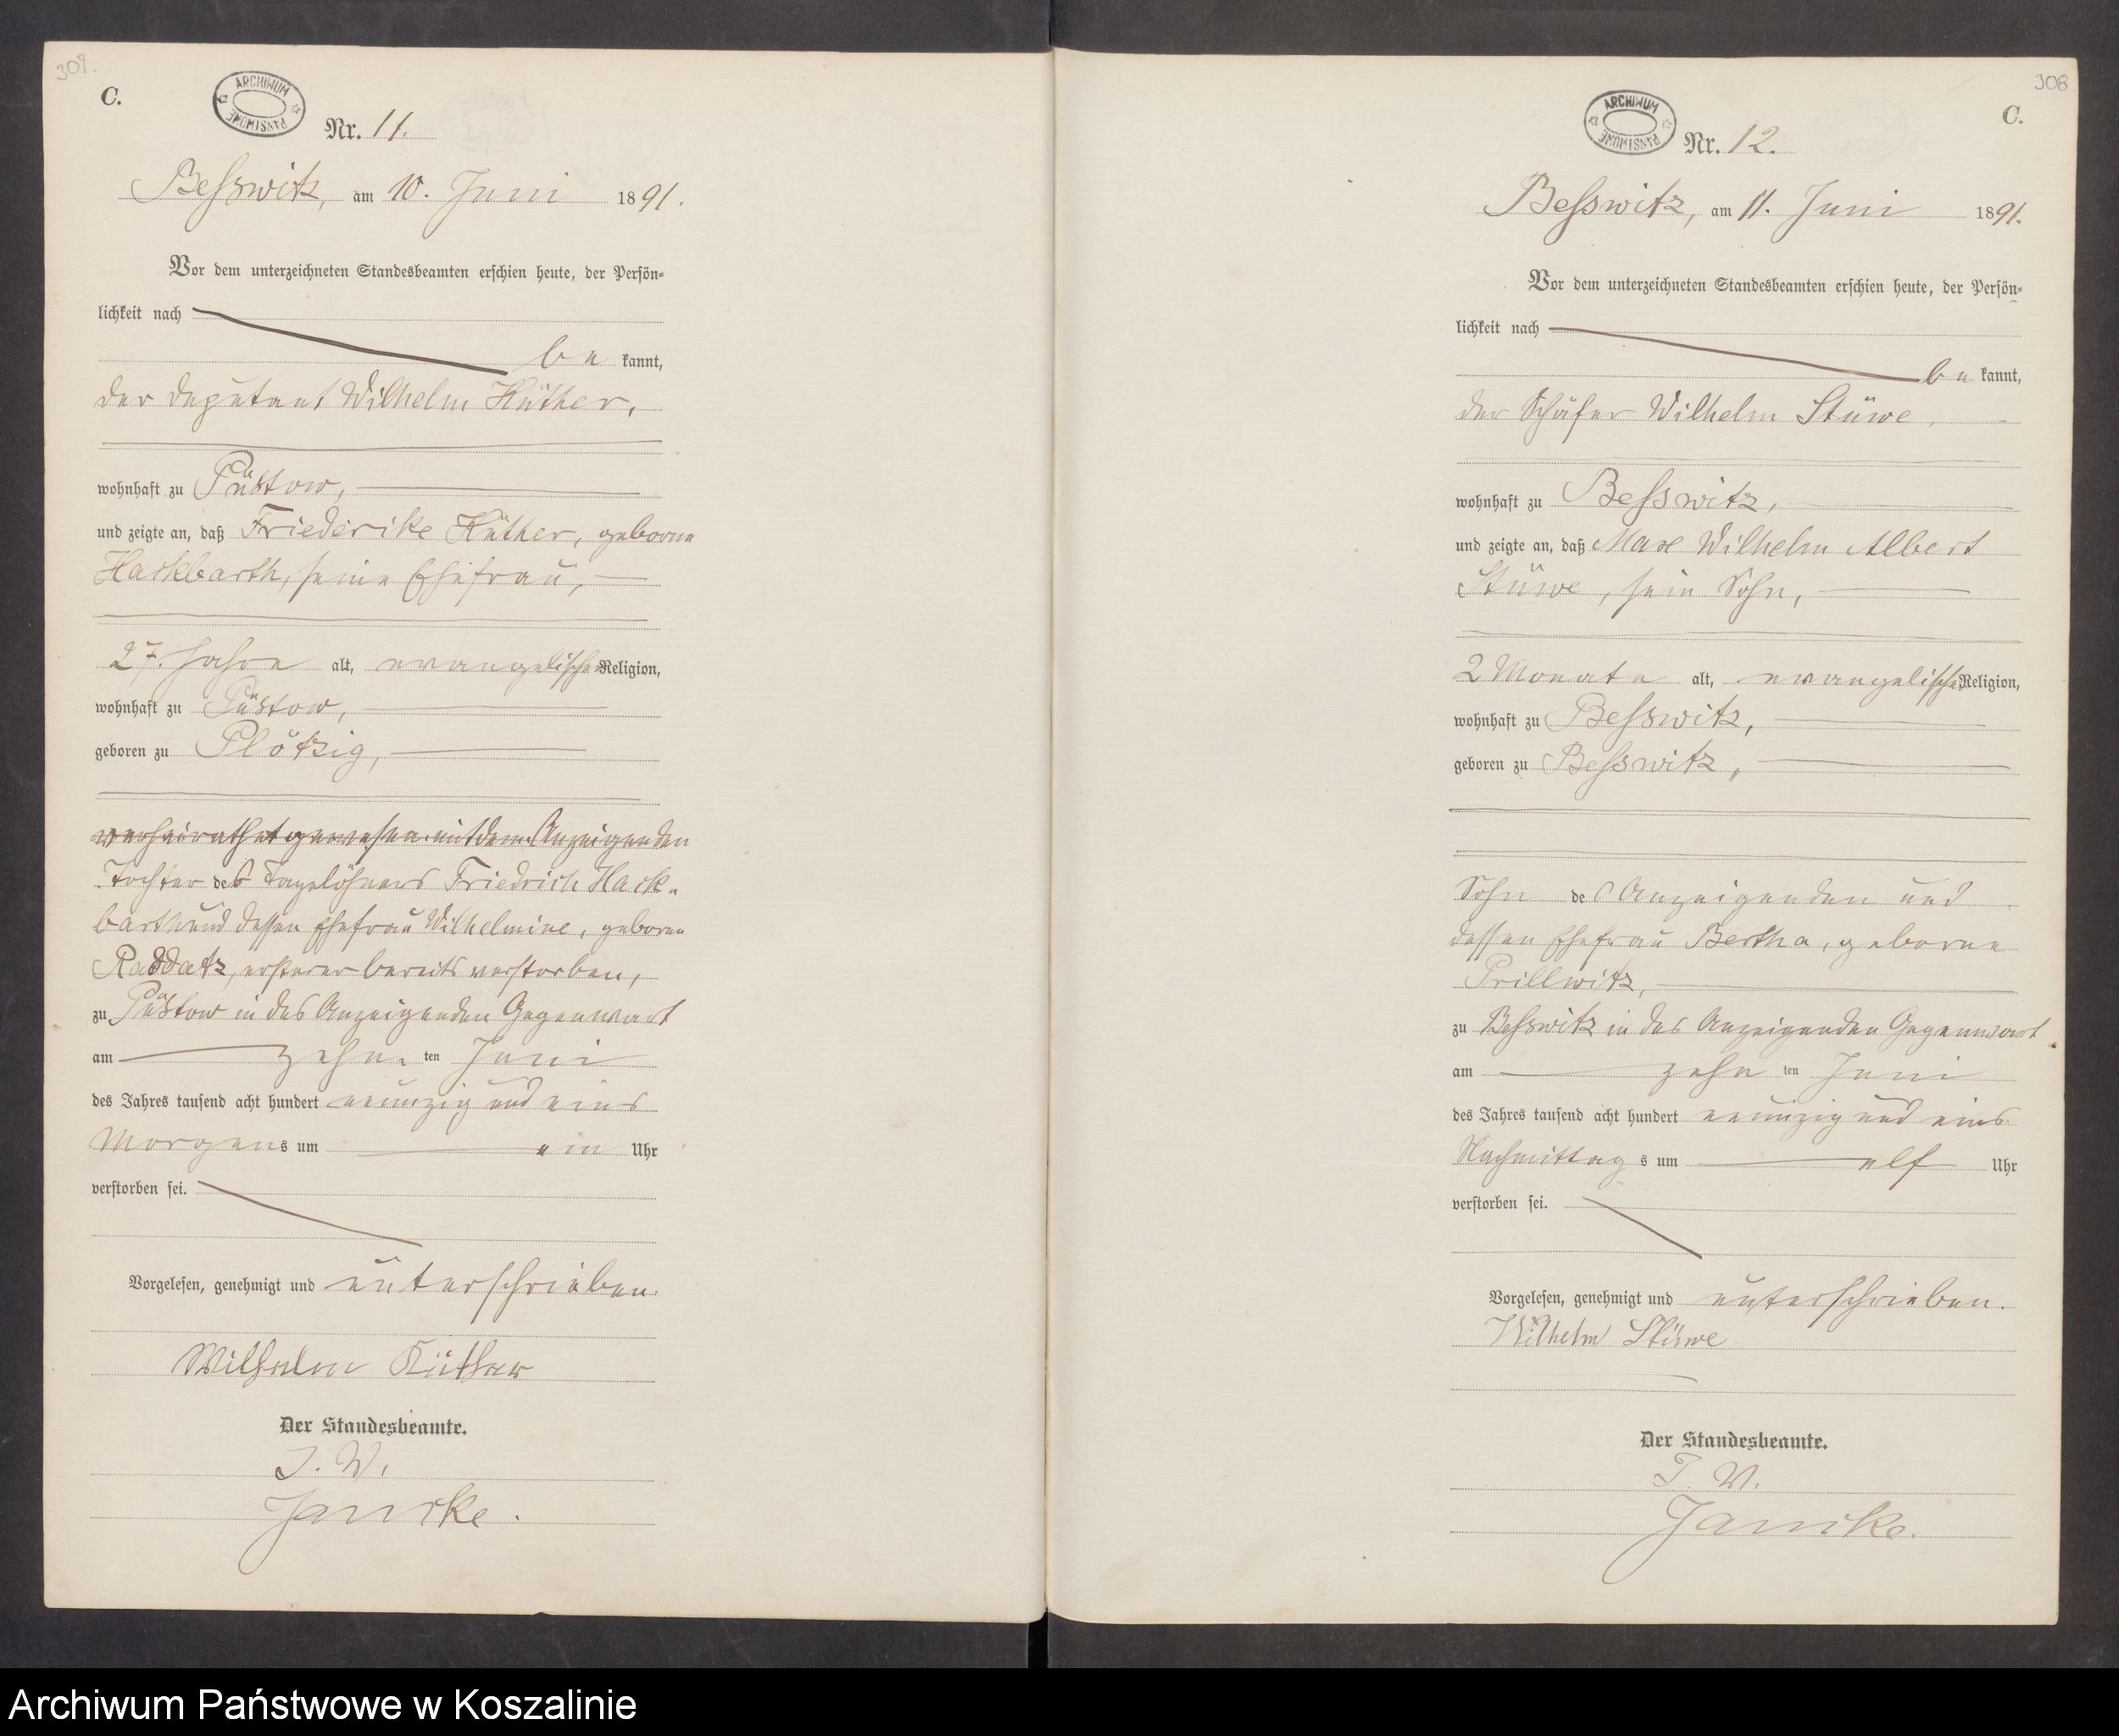 309.
C.
ARCHIWUM PAŃSTWOWE
Nr. 11.
Besswitz, am 10. Juni 1891.
Vor dem unterzeichneten Standesbeamten erschien heute, der Persön-
lichkeit nach
be kannt,
der Deputant Wilhelm Küther,
wohnhaft zu Püstow,
und zeigte an, daß Friederike Küther, geborne
Hackbarth, seine Ehefrau,
27. Jahre alt, evangelischer Religion,
wohnhaft zu Püstow,
geboren zu Plötzig,
verheirathet gewesen mit dem Anzeigenden
Tochter des Tagelöhners Friedrich Hack-
barth und dessen Ehefrau Wilhelmine, geboren
Raddatz, ersterer bereits verstorben,
zu Püstow in des Anzeigenden Gegenwart
am zehn ten Juni
des Jahres tausend acht hundert neunzig und eins
Morgens um ein Uhr
verstorben sei.
Vorgelesen, genehmigt und unterschrieben.
Wilhelm Küther
Der Standesbeamte.
J. W.
Jancke.
308
C.
ARCHIWUM PAŃSTWOWE
Nr. 12.
Besswitz, am 11. Juni 1891.
Vor dem unterzeichneten Standesbeamten erschien heute, der Persön-
lichkeit nach
be kannt,
der Schäfer Wilhelm Stüwe,
wohnhaft zu Besswitz,
und zeigte an, daß Max Wilhelm Albert
Stüwe, sein Sohn,
2 Monate alt, evangelischer Religion,
wohnhaft zu Besswitz,
geboren zu Besswitz,
Sohn des Anzeigenden und
dessen Ehefrau Bertha, geborne
Prillwitz,
zu Besswitz in des Anzeigenden Gegenwart
am zehn ten Juni
des Jahres tausend acht hundert neunzig und eins
Nachmittags um elf Uhr
verstorben sei.
Vorgelesen, genehmigt und unterschrieben.
Wilhelm Stüwe
Der Standesbeamte.
J. W.
Jancke.
Archiwum Państwowe w Koszalinie